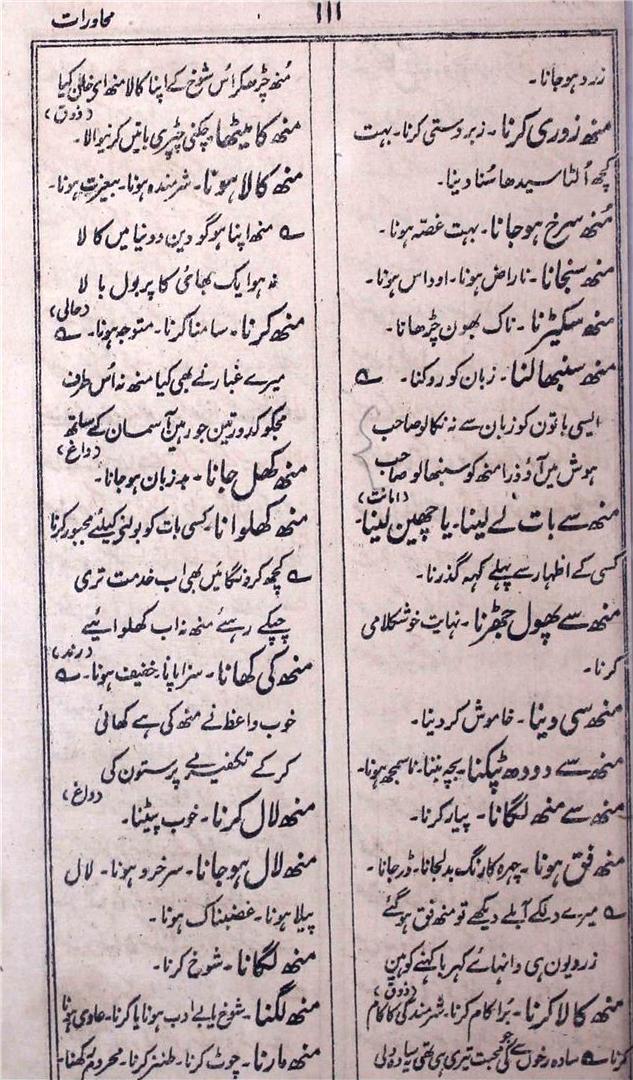 محاورات
۱۱۱
زرد ہوجانا۔
منھ زوری کرنا۔ زبردستی کرنا۔ بہت
کچھ اُلٹا سیدھا سُنا دینا۔
مُنھ سرخ ہوجانا۔ بہت غصّہ ہونا۔
منھ سنجانا۔ ناراض ہونا۔ اوداس ہونا۔
منھ سکیڑنا۔ ناک بھون چڑھانا۔
منھ سنبھالنا۔ زبان کو روکنا۔ ؎
ایسی باتون کو زبان سے نہ نکالو صاحب
ہوش مین آؤ ذرا منھ کو سنبھالو صاحب
(امانت)
منھ سے بات لے لینا۔ یا چھین لینا۔
کسی کے اظہار سے پہلے کہہ گذرنا۔
منھ سے پھول جھڑنا۔ نہایت خوشکلامی
کرنا۔
منھ سی دینا۔ خاموش کردینا۔
منھ سے دودھ ٹپکنا۔ بچہ بننا۔ ناسمجھ ہونا۔
منھ سے منھ لگانا۔ پیار کرنا۔
منھ فق ہونا۔ چہرہ کا رنگ بدلجانا۔ ڈرجانا۔
؎ میرے دلکے آبلے دیکھے تو منھ فق ہوگئے
زرویون ہی دانہائے کہربا کہنے کو ہین
(ذوق)
منھ کالا کرنا۔ بُرا کام کرنا۔ شرمندگی کا کام
کرنا ؎ سادہ رخوں سے گئی صحبت تیری ہی تھی سیاہ دلی
مُنھ چڑھکر اُس شوخ کے اپنا کالا منھ ای خال کیا
(ذوق)
منھ کا میٹھا۔ چکنی چپڑی باتیں کرنیوالا۔
منھ کالا ہونا۔ شرمندہ ہونا۔ بیعزت ہونا۔
؎ منھ اپنا ہو گو دین و دنیا میں کالا
نہ ہو ایک بھائی کا پر بول بالا
(حالی)
منھ کرنا۔ سامنا کرنا۔ متوجہ ہونا۔ ؎
میرے غبار نے بھی کیا منھ نہ اُس طرف
مجکو کدورتین جو رہین آسمان کے ساتھ
(داغ)
منھ کھل جانا۔ بدزبان ہوجانا۔
منھ کھلوانا۔ کسی بات کو بولنے کیلئے مجبور کرنا
؎ کچھ کرونگا میں بھی اب خدمت تری
چپکے رہئے منھ نہ اب کھلوائیے
(رند)
منھ کی کھانا۔ سزا پانا۔ خفیف ہونا۔ ؎
خوب واعظ نے منھ کی ہے کھائی
کرکے تکفیر مے پرستون کی
(داغ)
منھ لال کرنا۔ خوب پیٹنا۔
منھ لال ہوجانا۔ سرخرو ہونا۔ لال
پیلا ہونا۔ غضبناک ہونا۔
منھ لگانا۔ شوخ کرنا۔
منھ لگنا۔ شوخ یا بے ادب ہونا یا کرنا۔ عادی ہونا
منھ مارنا۔ چوٹ کرنا۔ طنز کرنا۔ محروم رکھنا۔